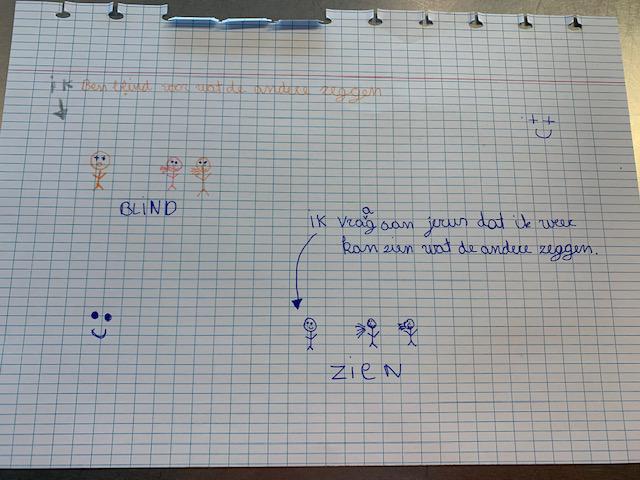 ik Ben blind voor wat de andere zeggen
BLIND
ik vraag aan jezus dat ik weer
kan zien wat de andere zeggen.
ZIEN